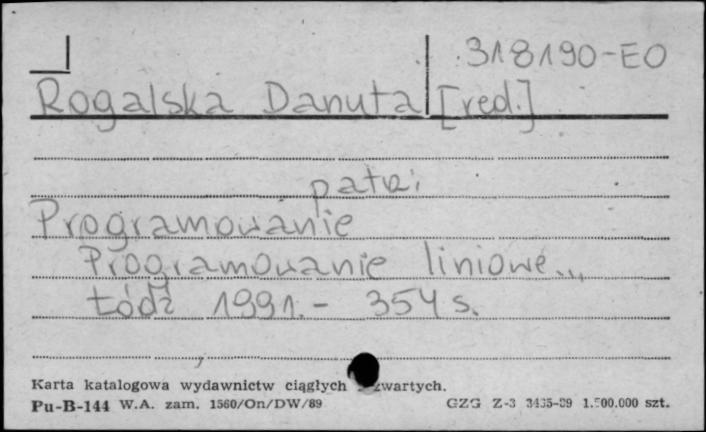 318190-EO
Rogalska Danuta [red.]
patrz:
Programowanie
Programowanie liniowe...
Łódź 1991.- 354 s.
Karta katalogowa wydawnictw ciągłych zwartych.
Pu-B-144 W.A. zam. 1560/On/DW/89 GZG Z-3 3435-89 1.500.000 szt.